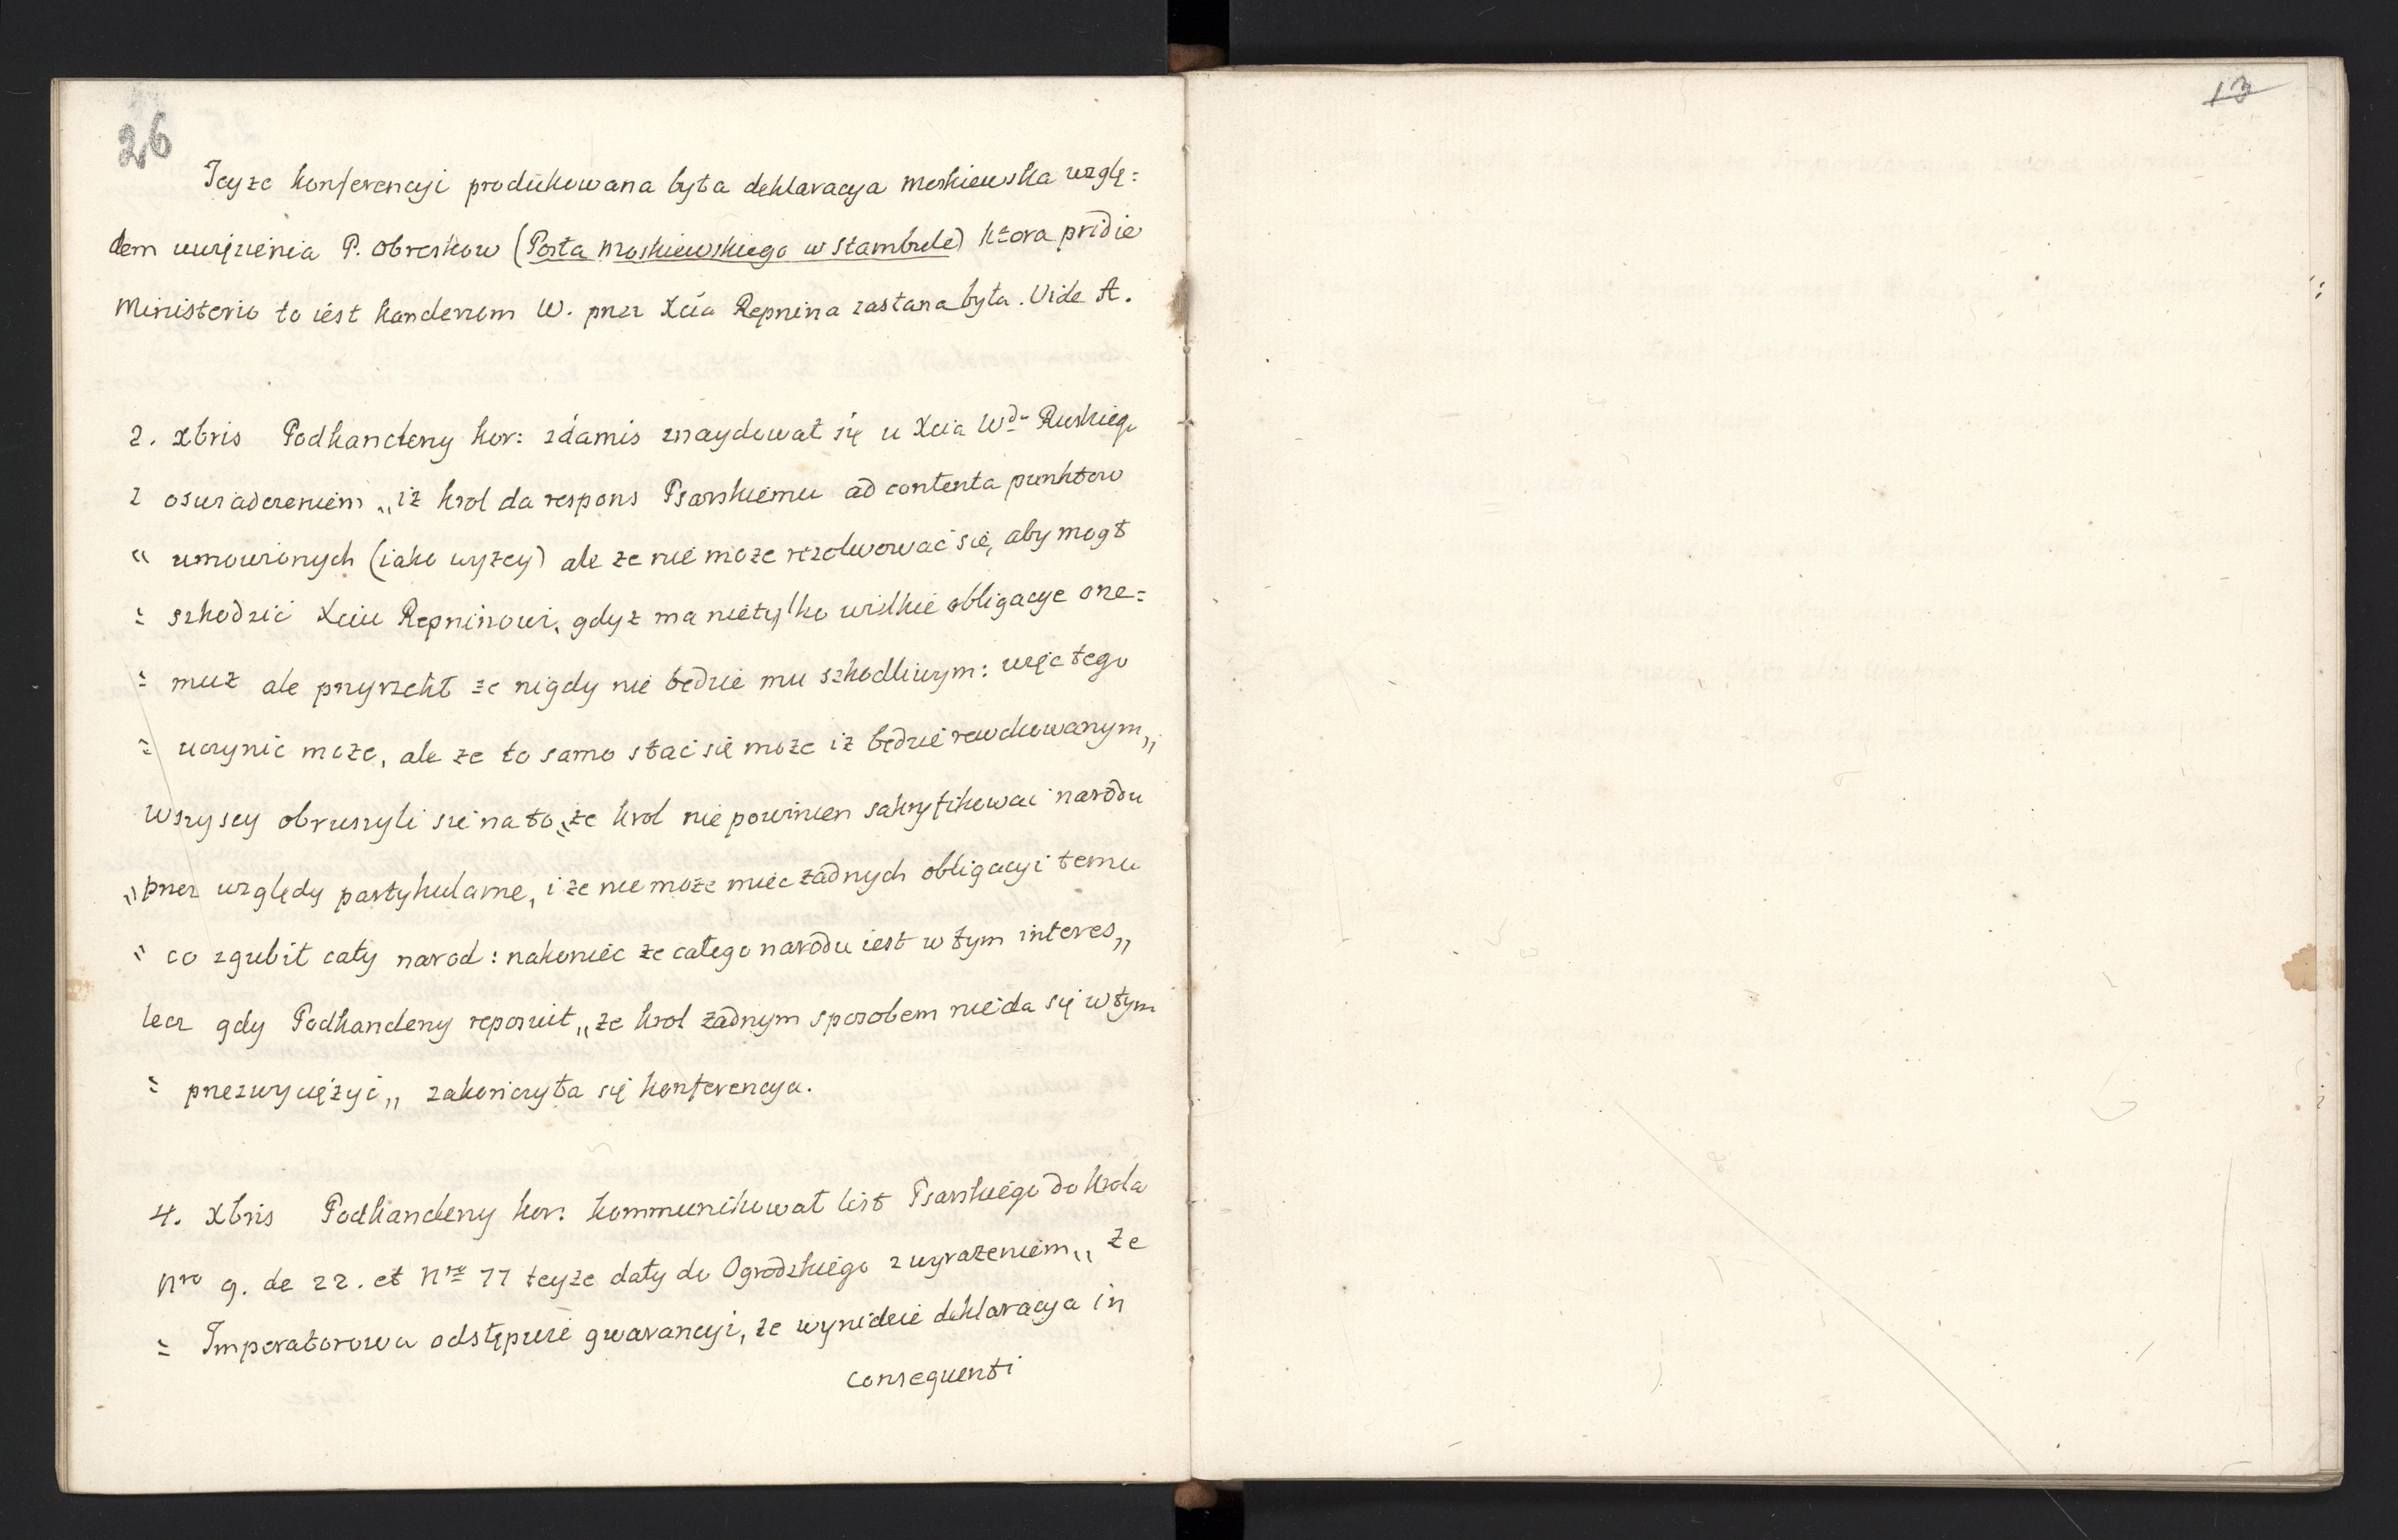 26
Teyze konferencyi produkowana była deklaracya moskiewska wzglę=
dem uwięzienia P. Obreskow (Posła moskiewskiego w Stambule) ktora pridie
Ministerio to iest Kanclerzom W. przez Xcia Repnina zasłana była. Vide A.
2. Xbris Podkanclerzy kor: zdamis znaydował się u Xcia Wdy Ruskiego
z oswiadczeniem „iz krol da respons Psarskiemu ad contenta punktow
„ umowionych (iako wyzey) ale ze nie moze rezolwować sie, aby mogł
= szkodzić Xciu Repninowi, gdyz ma nietylko wielkie obligacye one=
= muz ale przyrzekł ze nigdy nie będzie mu szkodliwym: więc tego
= uczynic moze, ale ze to samo stać sie moze iz będzie rewokowanym„
Wszyscy obruszyli sie na to „ze krol nie powinien sakryfikować narodu
„przez względy partykularne, i ze nie moze miec żadnych obligacyi temu
„ co zgubił cały narod: nakoniec ze całego narodu iest w tym interes„
lecz gdy Podkanclerzy reposuit „ze krol żadnym sposobem nie da się w tym
= przezwyciężyć„ zakończyła się konferencya.
4. Xbris Podkanclerzy kor: kommunikował list Psarskiego do krola
Nro 9. de 22. et Nro 77 teyze daty do Ogrodzkiego z wyrazeniem„ ze
= Imperatorowa odstępuie gwarancyi, ze wynidzie deklaracya in
consequenti
13